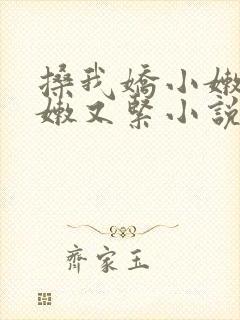 搡我嬌小嫩
嫩又緊小說
齊家玉